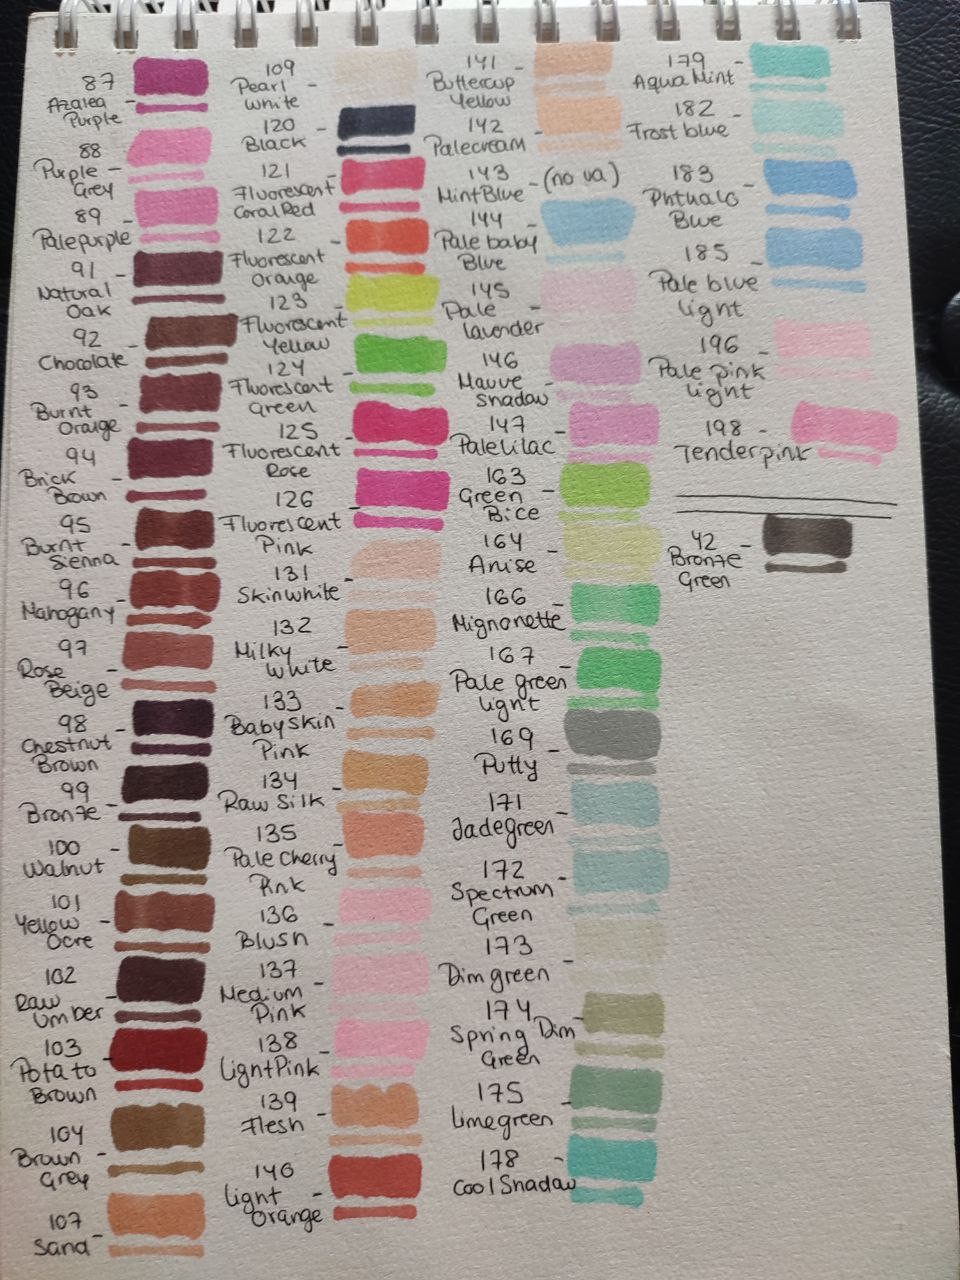 87
Azalea
Purple
88
Purple
Grey
89
Palepurple
91
Natural
Oak
92
Chocolate
93
Burnt
Orange
94
Brick
Brown
95
Burnt
Sienna
96
Mahogany
97
Rose
Beige
98
Chestnut
Brown
99
Bronze
100
Walnut
101
Yellow
Ocre
102
Raw
Umber
103
Potato
Brown
104
Brown
Grey
107
Sand
109
Pearl
White
120
Black
121
Fluorescent
Coral Red
122
Fluorescent
Orange
123
Fluorescent
Yellow
124
Fluorescent
Green
125
Fluorescent
Rose
126
Fluorescent
Pink
131
Skinwhite
132
Milky
White
133
Babyskin
Pink
134
Raw Silk
135
Pale Cherry
Pink
136
Blush
137
Medium
Pink
138
Light Pink
139
Flesh
146
Light
Orange
141
Buttercup
Yellow
142
Palecream
143
Mint Blue - (no va)
144
Pale baby
Blue
145
Pale
lavender
146
Mauve
Shadow
147
Palelilac
163
Green
Bice
164
Anise
166
Mignonette
167
Pale green
light
169
Putty
171
Jadegreen
172
Spectrum
Green
173
Dim green
174
Spring Dim
Green
175
Limegreen
178
Cool Shadow
179
Aqua Mint
182
Frost blue
183
Phthalo
Blue
185
Pale blue
light
196
Pale pink
light
198
Tenderpink
42
Bronze
Green